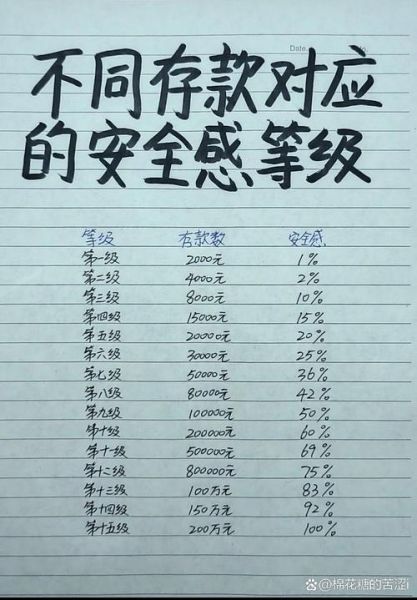 Date.
不同存款对应
的安全感等级
等级 存款数 安全感
第一级 2000元 1%
第二级 4000元 2%
第三级 8000元 10%
第四级 15000元 15%
第五级 20000元 20%
第六级 30000元 25%
第七级 50000元 36%
第八级 80000元 42%
第九级 100000元 50%
第十级 200000元 60%
第十一级 500000元 69%
第十二级 800000元 75%
第十三级 100万元 83%
第十四级 150万元 92%
第十五级 200万元 100%
@棉花糖的苦涩i